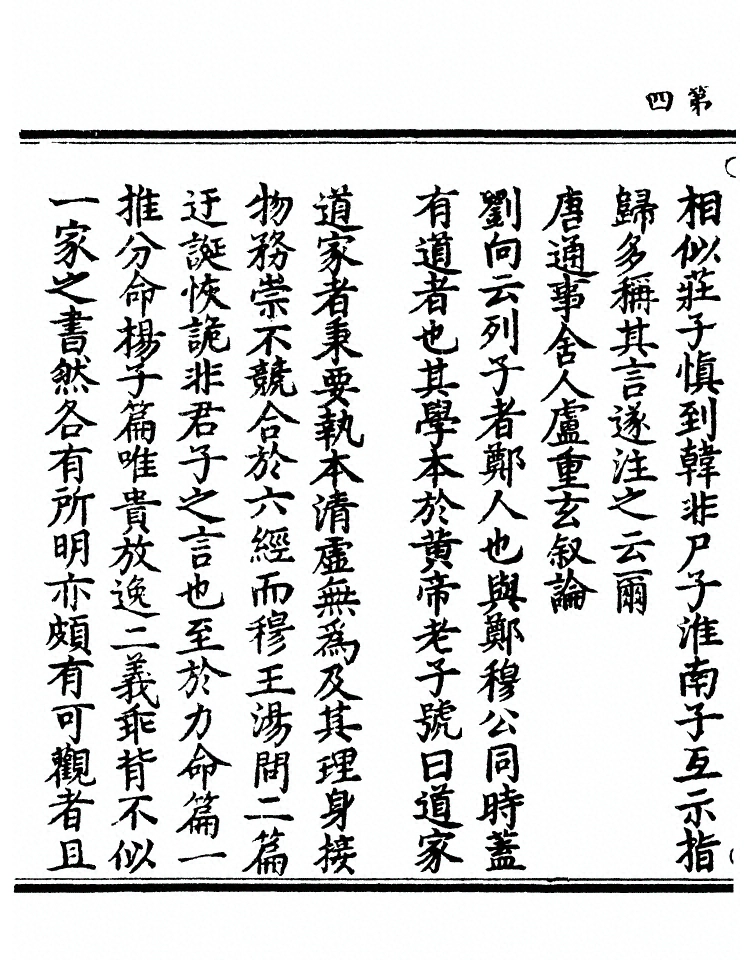 第四
相似莊子慎到韓非尸子淮南子互示指
歸多稱其言遂注之云爾
唐通事舍人盧重玄叙論
劉向云列子者鄭人也與鄭穆公同時蓋
有道者也其學本於黃帝老子號曰道家
道家者秉要執本清虛無為及其理身接
物務崇不競合於六經而穆王湯問二篇
迂誕恢詭非君子之言也至於力命篇一
推分命楊子篇唯貴放逸二義乖背不似
一家之書然各有所明亦頗有可觀者且